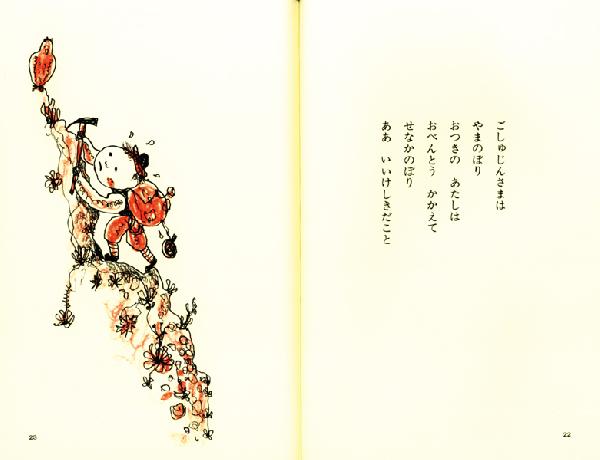 ごしゅじんさまは
やまのぼり
おつきの　あたしは
おべんとう　かかえて
せなかのぼり
ああ　いいけしきだこと
22
23